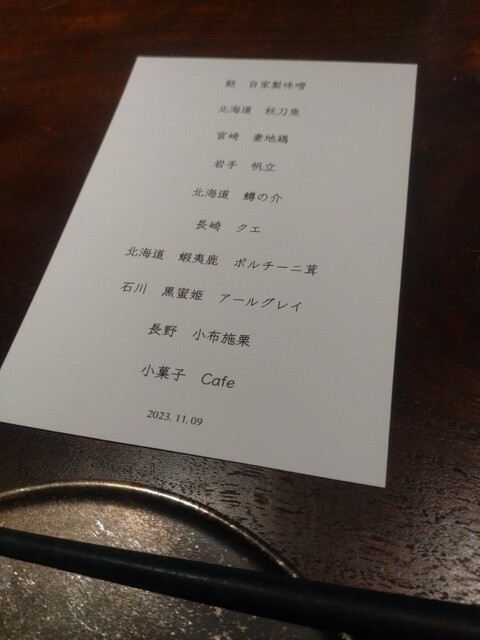 麩 自家製味噌
北海道 秋刀魚
宮崎 妻地鶏
岩手 帆立
北海道 鱒の介
長崎 クエ
北海道 蝦夷鹿 ポルチーニ茸
石川 黒蜜姫 アールグレイ
長野 小布施栗
小菓子 Cafe
2023.11.09